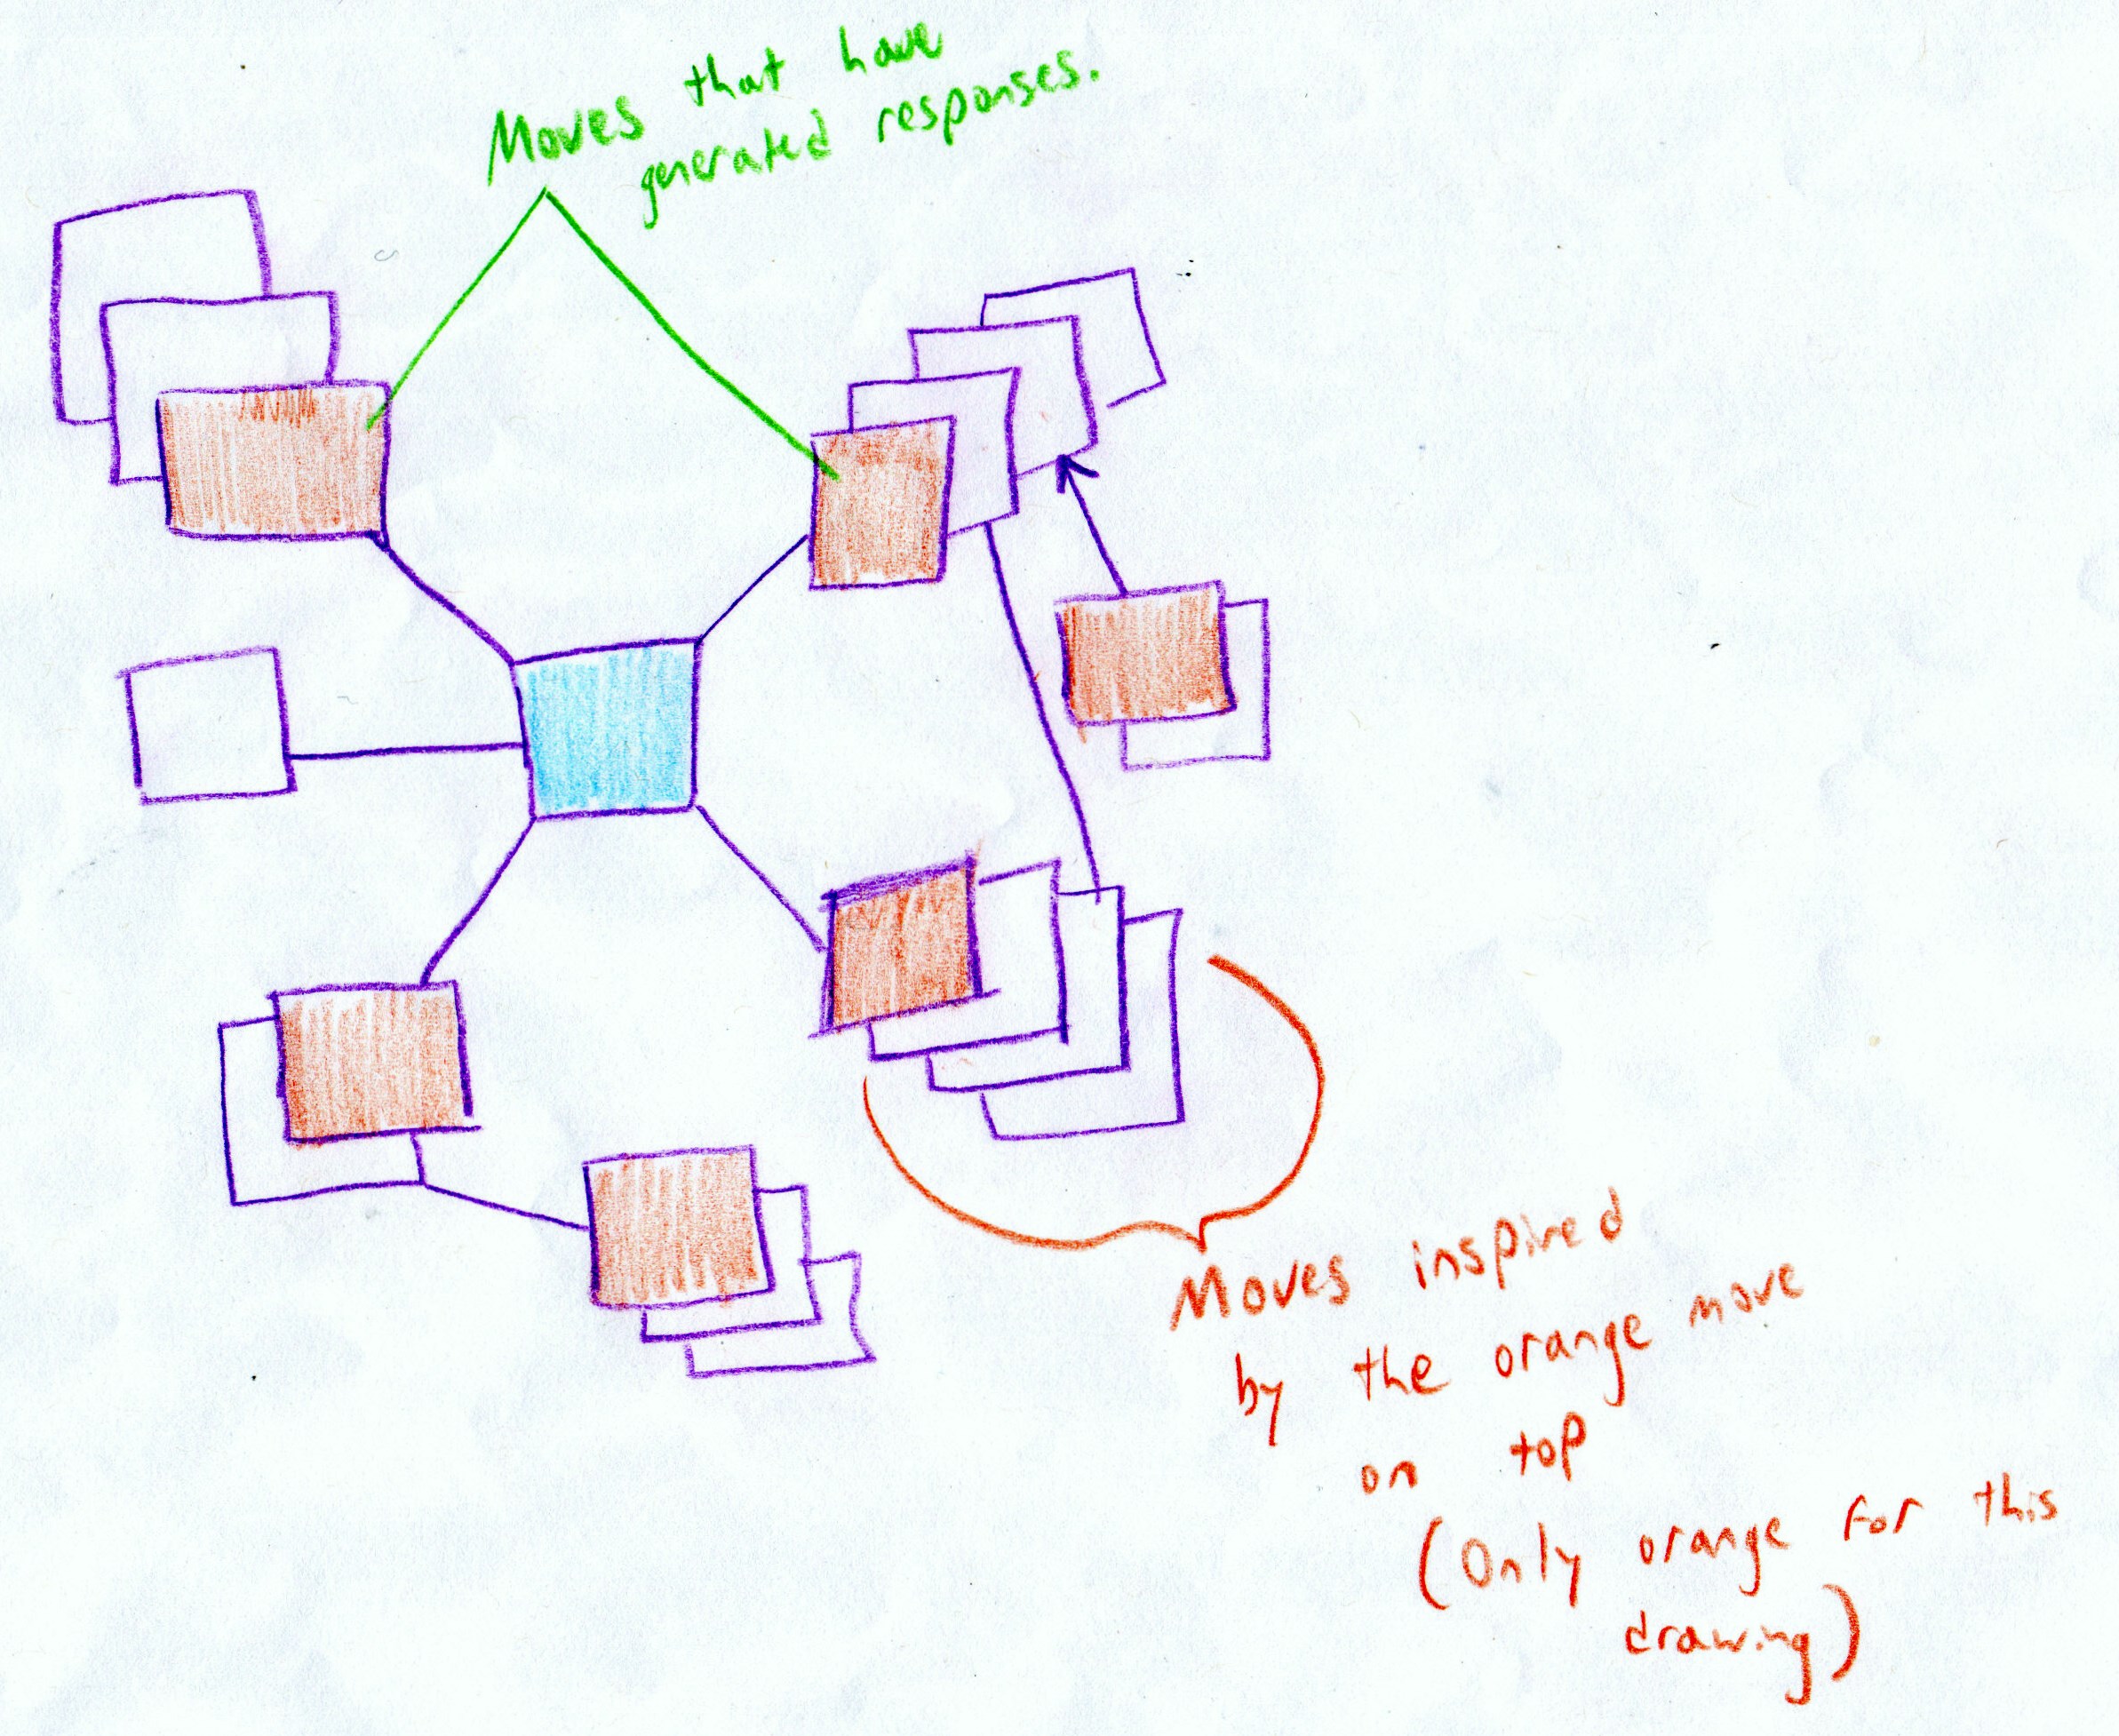 Moves that have
generated responses.
Moves inspired
by the orange move
on top
(Only orange for this
drawing)